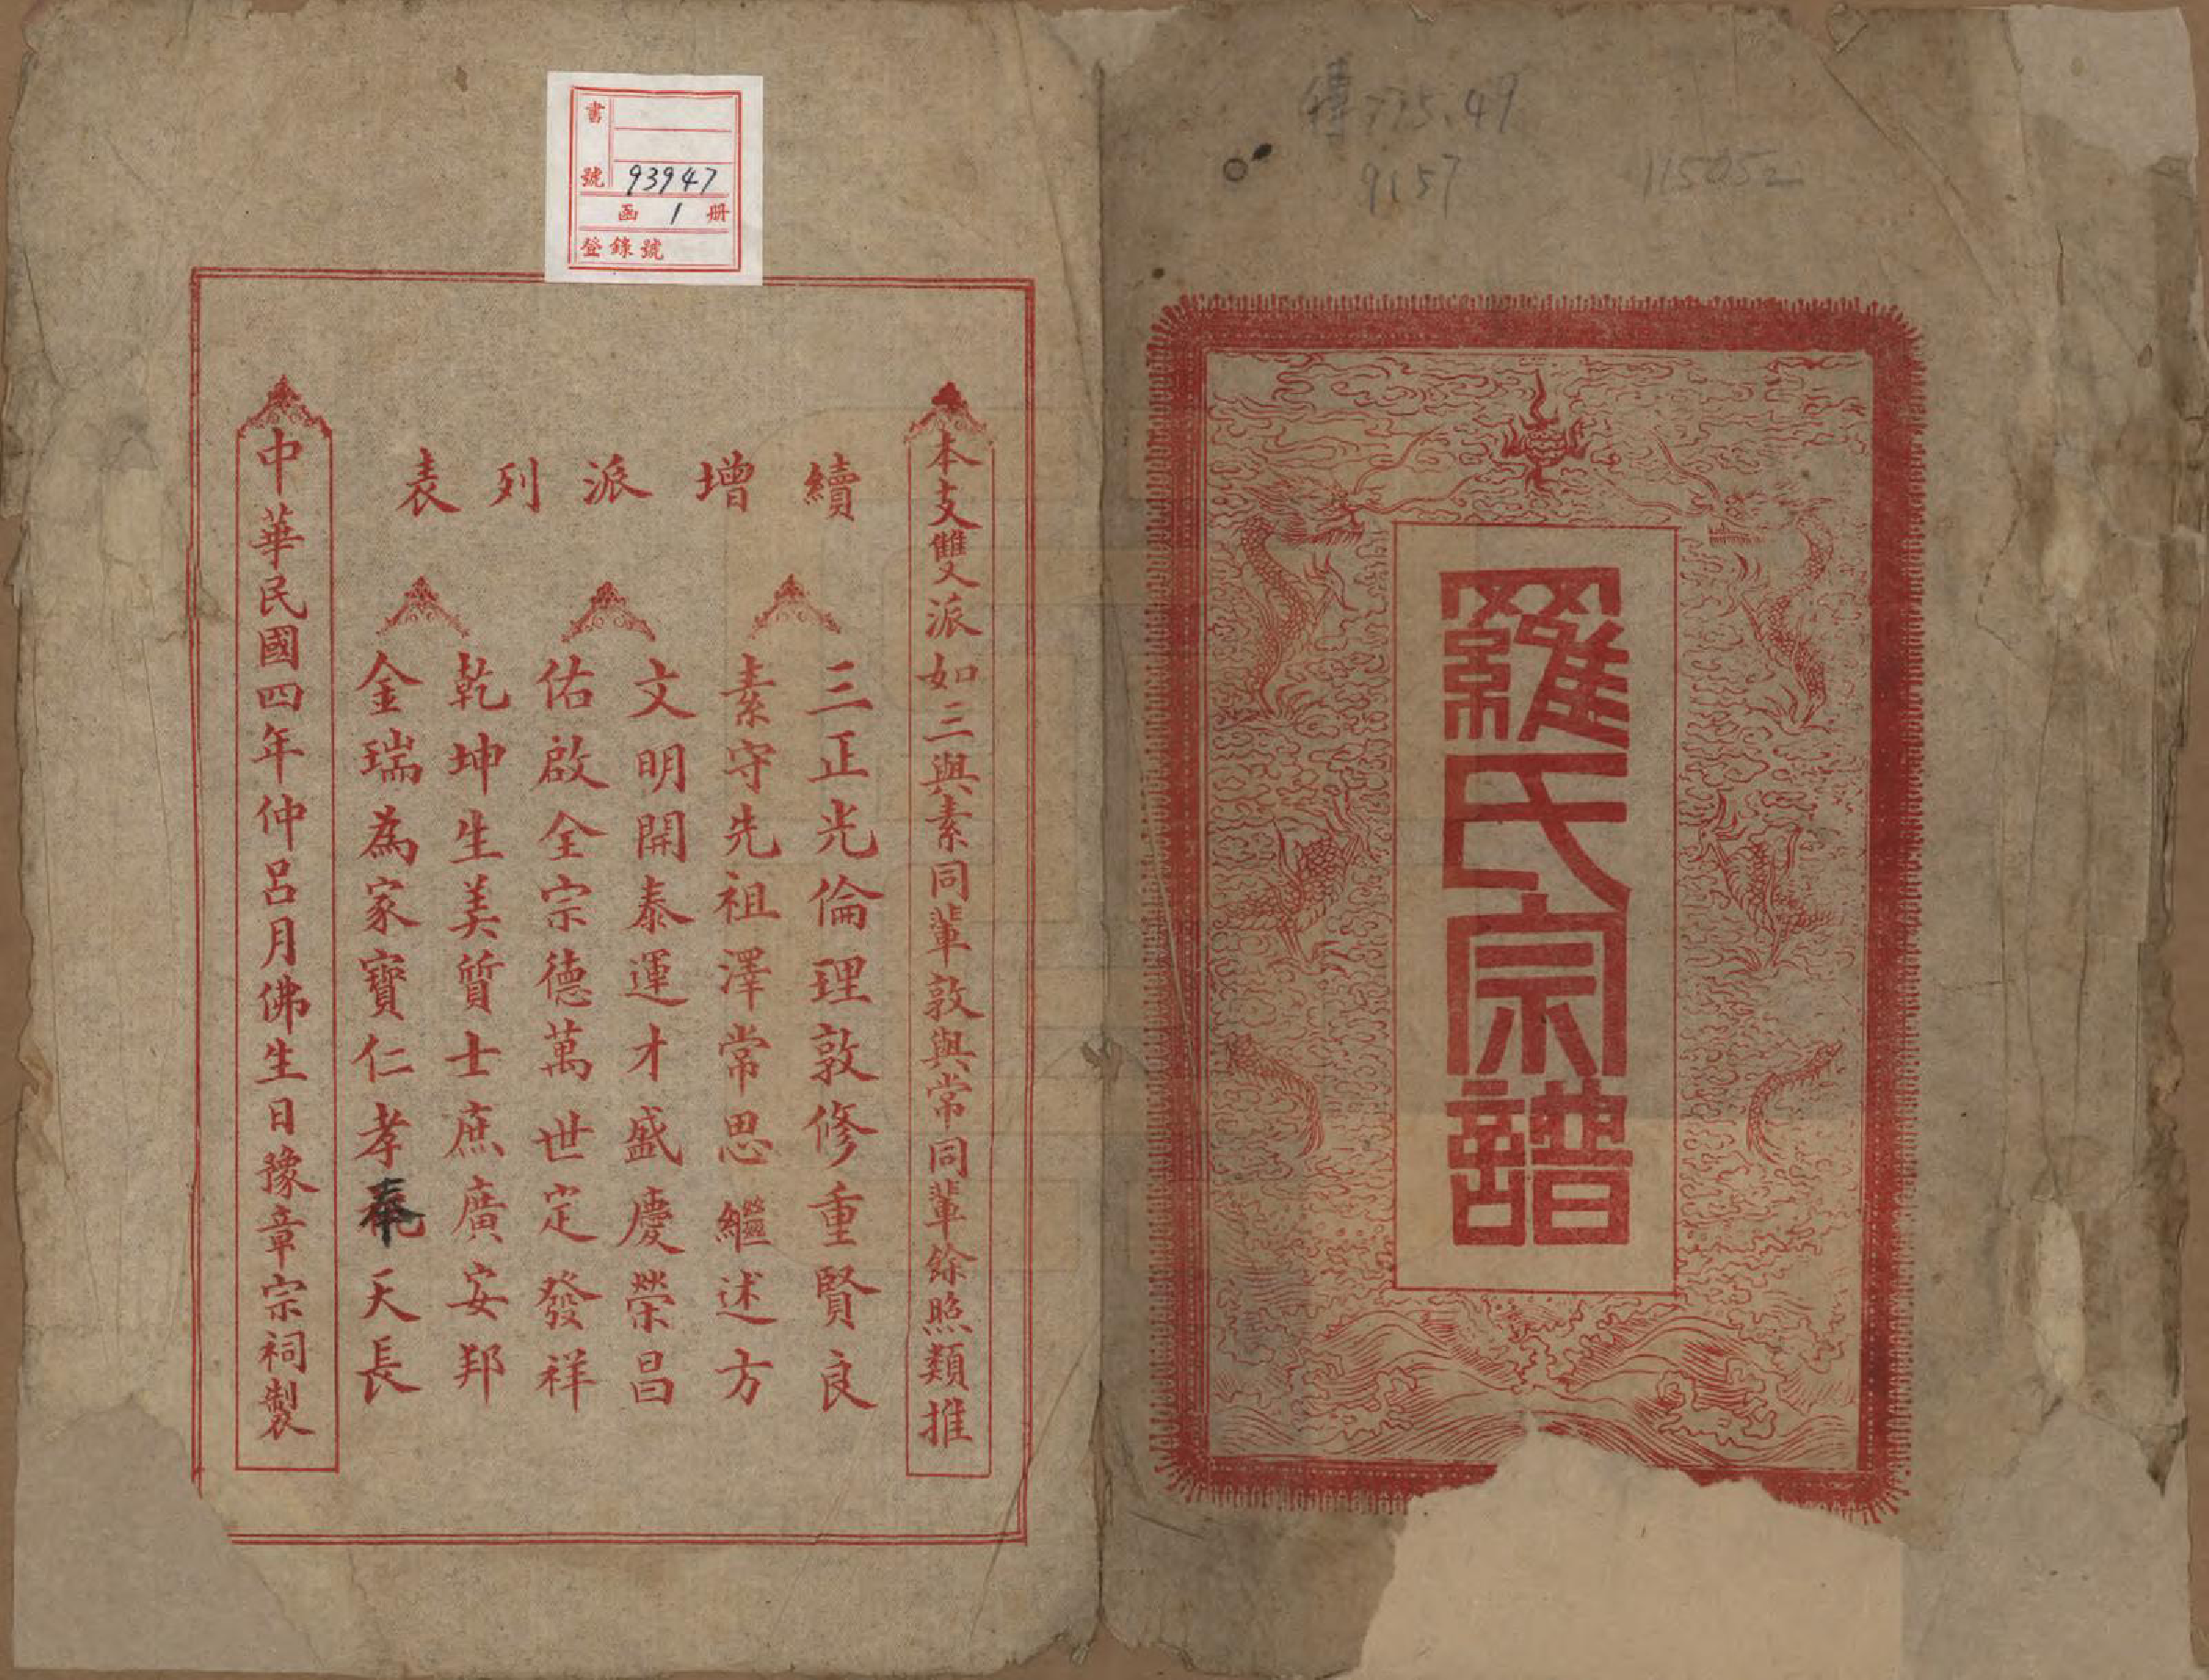 傳775.49
9157
115052
羅氏宗譜
書號 93947
函 1 册
登錄號
本支雙派如三與素同輩敦與常同輩餘照類推
續增派列表
三正光倫理敦修重賢良
素守先祖澤常思繼述方
文明開泰運才盛慶榮昌
佑啟全宗德萬世定發祥
乾坤生美質士庶廣安邦
金瑞為家寶仁孝奉天長
中華民國四年仲呂月佛生日豫章宗祠製